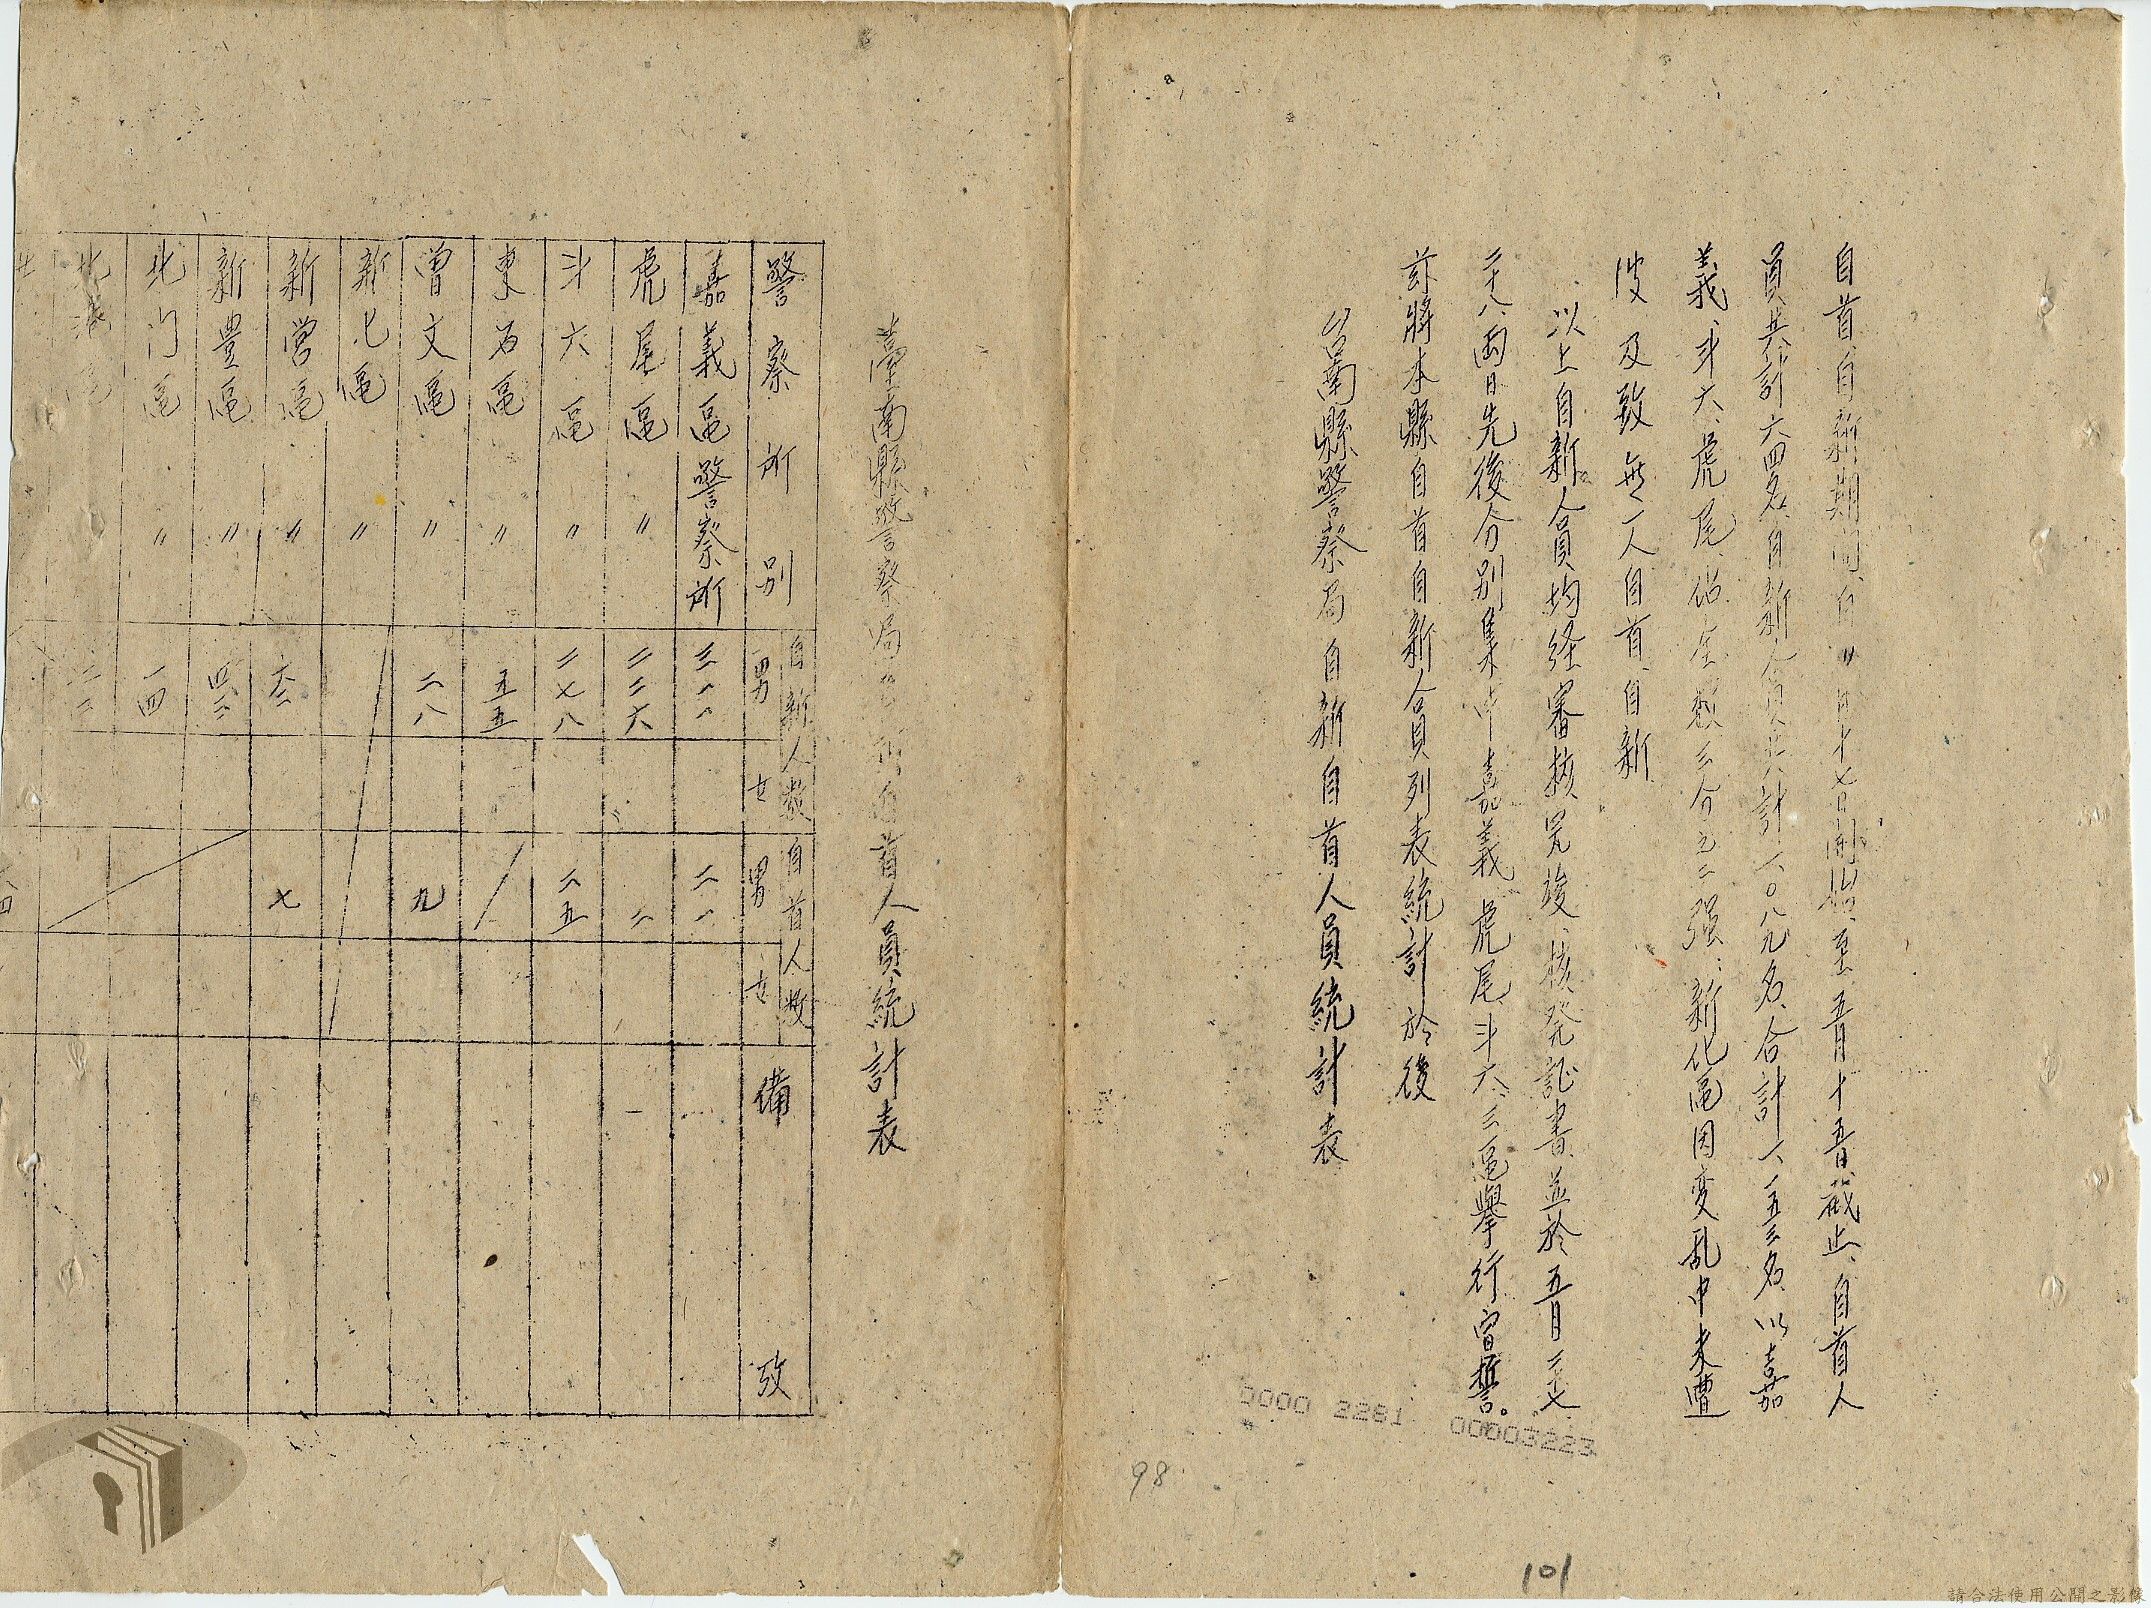 自首、自新期間、自 月十七日開始至五月十五日截止、自首人
員共計六四名、自新人員共計一〇八九名、合計一一五三名、以嘉
義、斗六、虎尾、佔全数三分之二强、新化區因变乱中未遭
波及致無一人自首、自新
以上自新人員均経審核完竣、核発証書、並於五月二十七
二十八、両日先後分别集中嘉義虎尾斗六、三區舉行宣誓。
茲將本縣自首自新人員列表統計於後
台南縣警察局自新自首人員統計表
0000 2281 00003223
98
101
臺南縣警察局 自首人員統計表
警察所别 自新人数 男 女 自首人数 男 女 備 攷
嘉義區警察所 三一一 二一
虎尾區 〃 二二六 二
斗六區 〃 二七八 二五
東石區 〃 五五
曾文區 〃 二八 九
新化區 〃
新営區 〃 七
新豊區 〃 四二
北门區 〃 一四
北港區 二二
請合法使用公開之影像